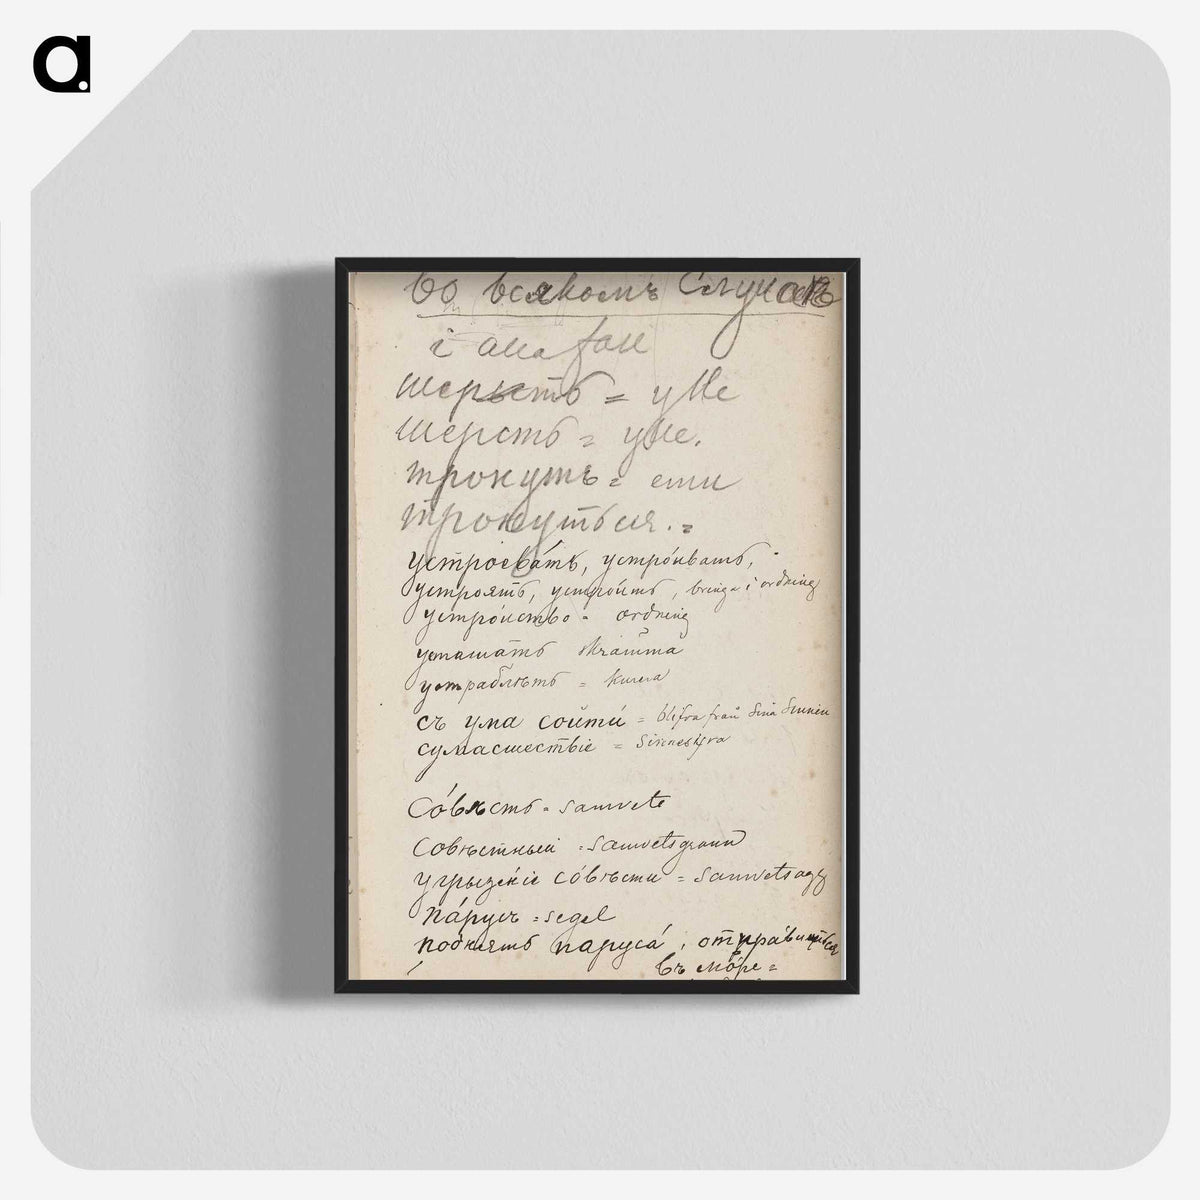 a.
Во всякомъ Случаѣ
i alla fall
шерсть = ylle
шерсть = ylle.
тронуть =
тронуться. =
устроевáть, устрóивать,
устроять, устрóить, bringa i ordning
устрóиство = ordning
устрашáть skrämma
употрaблять =
съ ума сойти́ = blifva från Sina Sinnen
сумасшествіе =
Сóвѣсть = samvete
совѣстный = samvetsgrann
угрызéніе сóвѣсти = samvetsagg
пáрусъ = segel
поднять парусá, отпрáвиться
въ мóре =